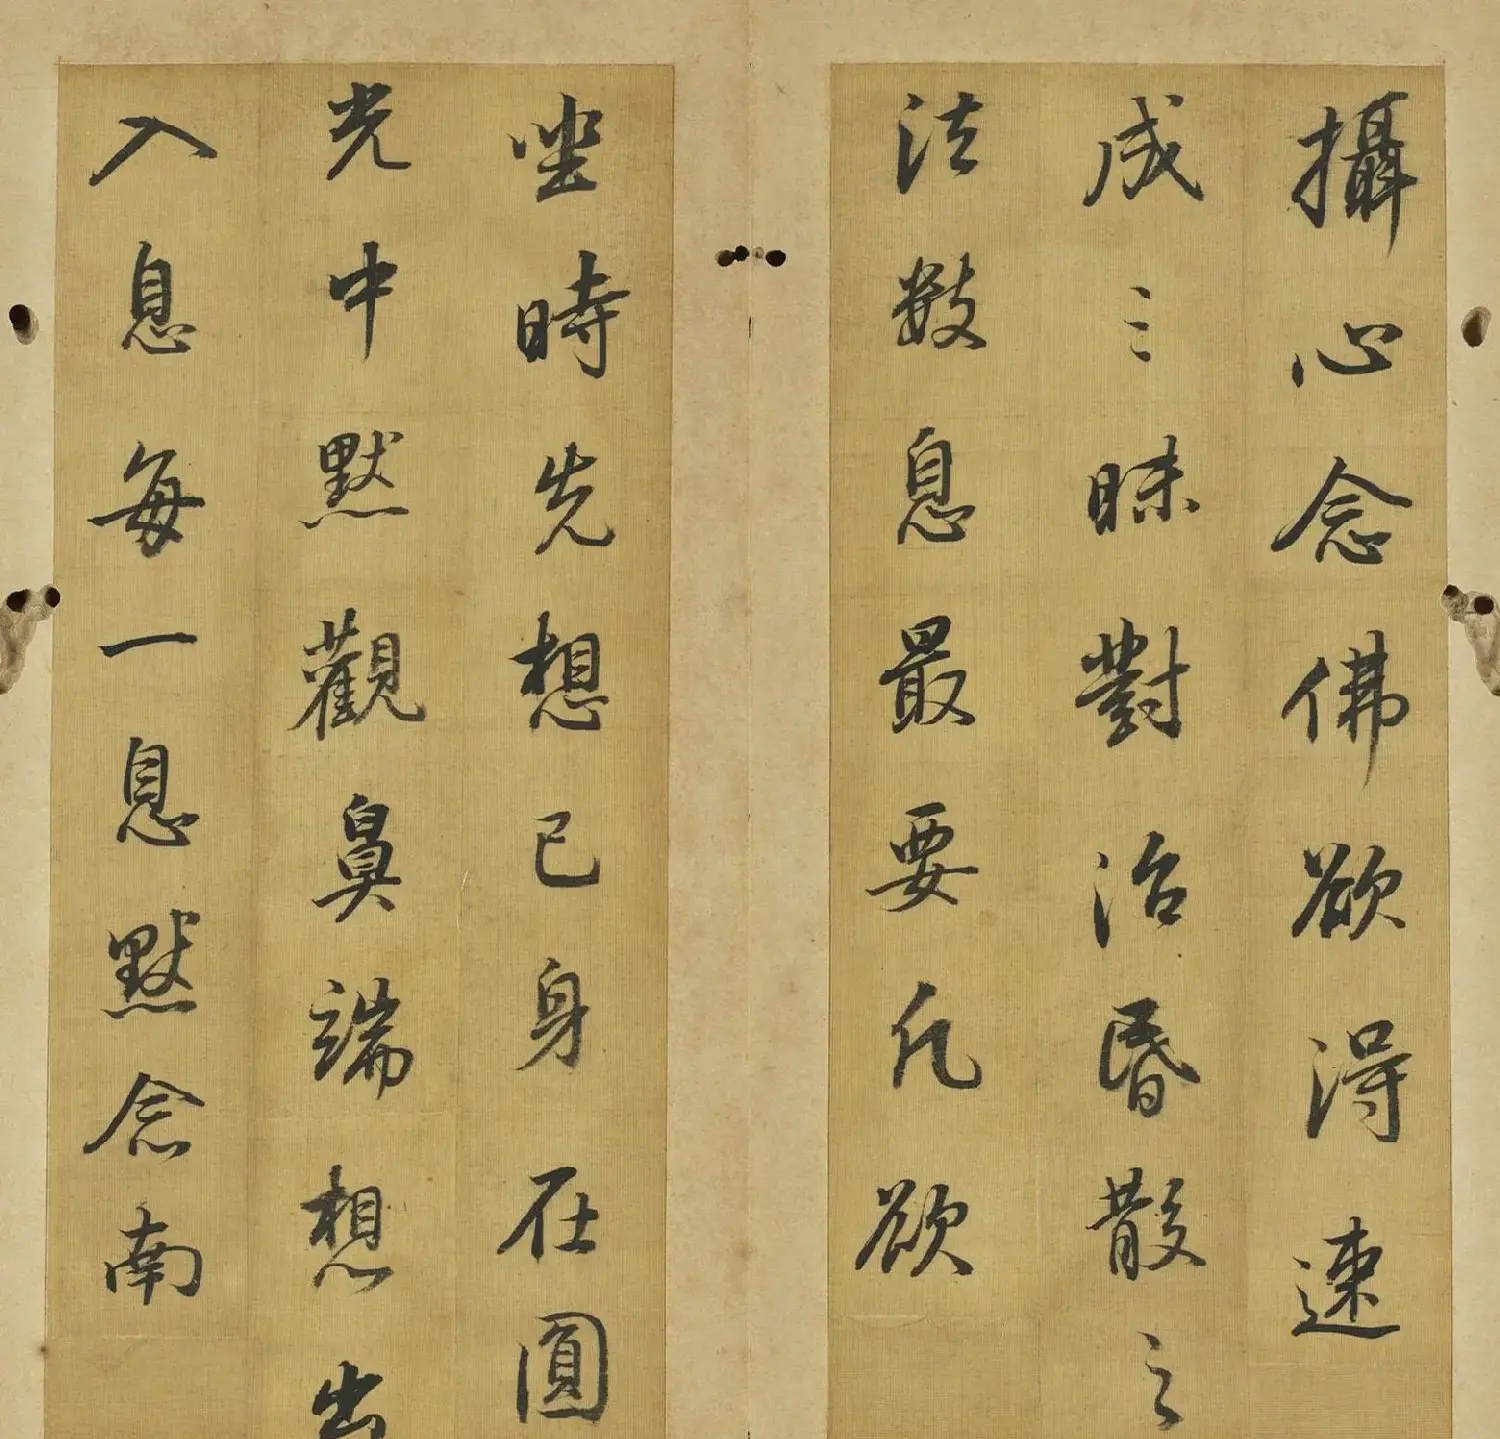 攝心念佛欲得速
成三昧對治昏散之
法數息最要凡欲
坐時先想己身在圓
光中默觀鼻端想出
入息每一息默念南